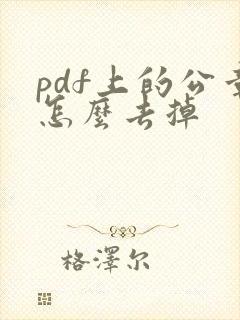 pdf上的公章
怎麼去掉
格澤尔